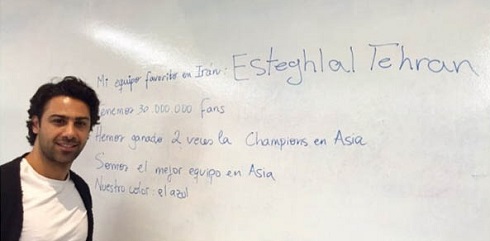 Mi equipo favorito en Irán: Esteghlal Tehran
Tenemos 30.000.000 fans
Hemos ganado 2 veces la Champions en Asia
Somos el mejor equipo en Asia
Nuestro color: el azul